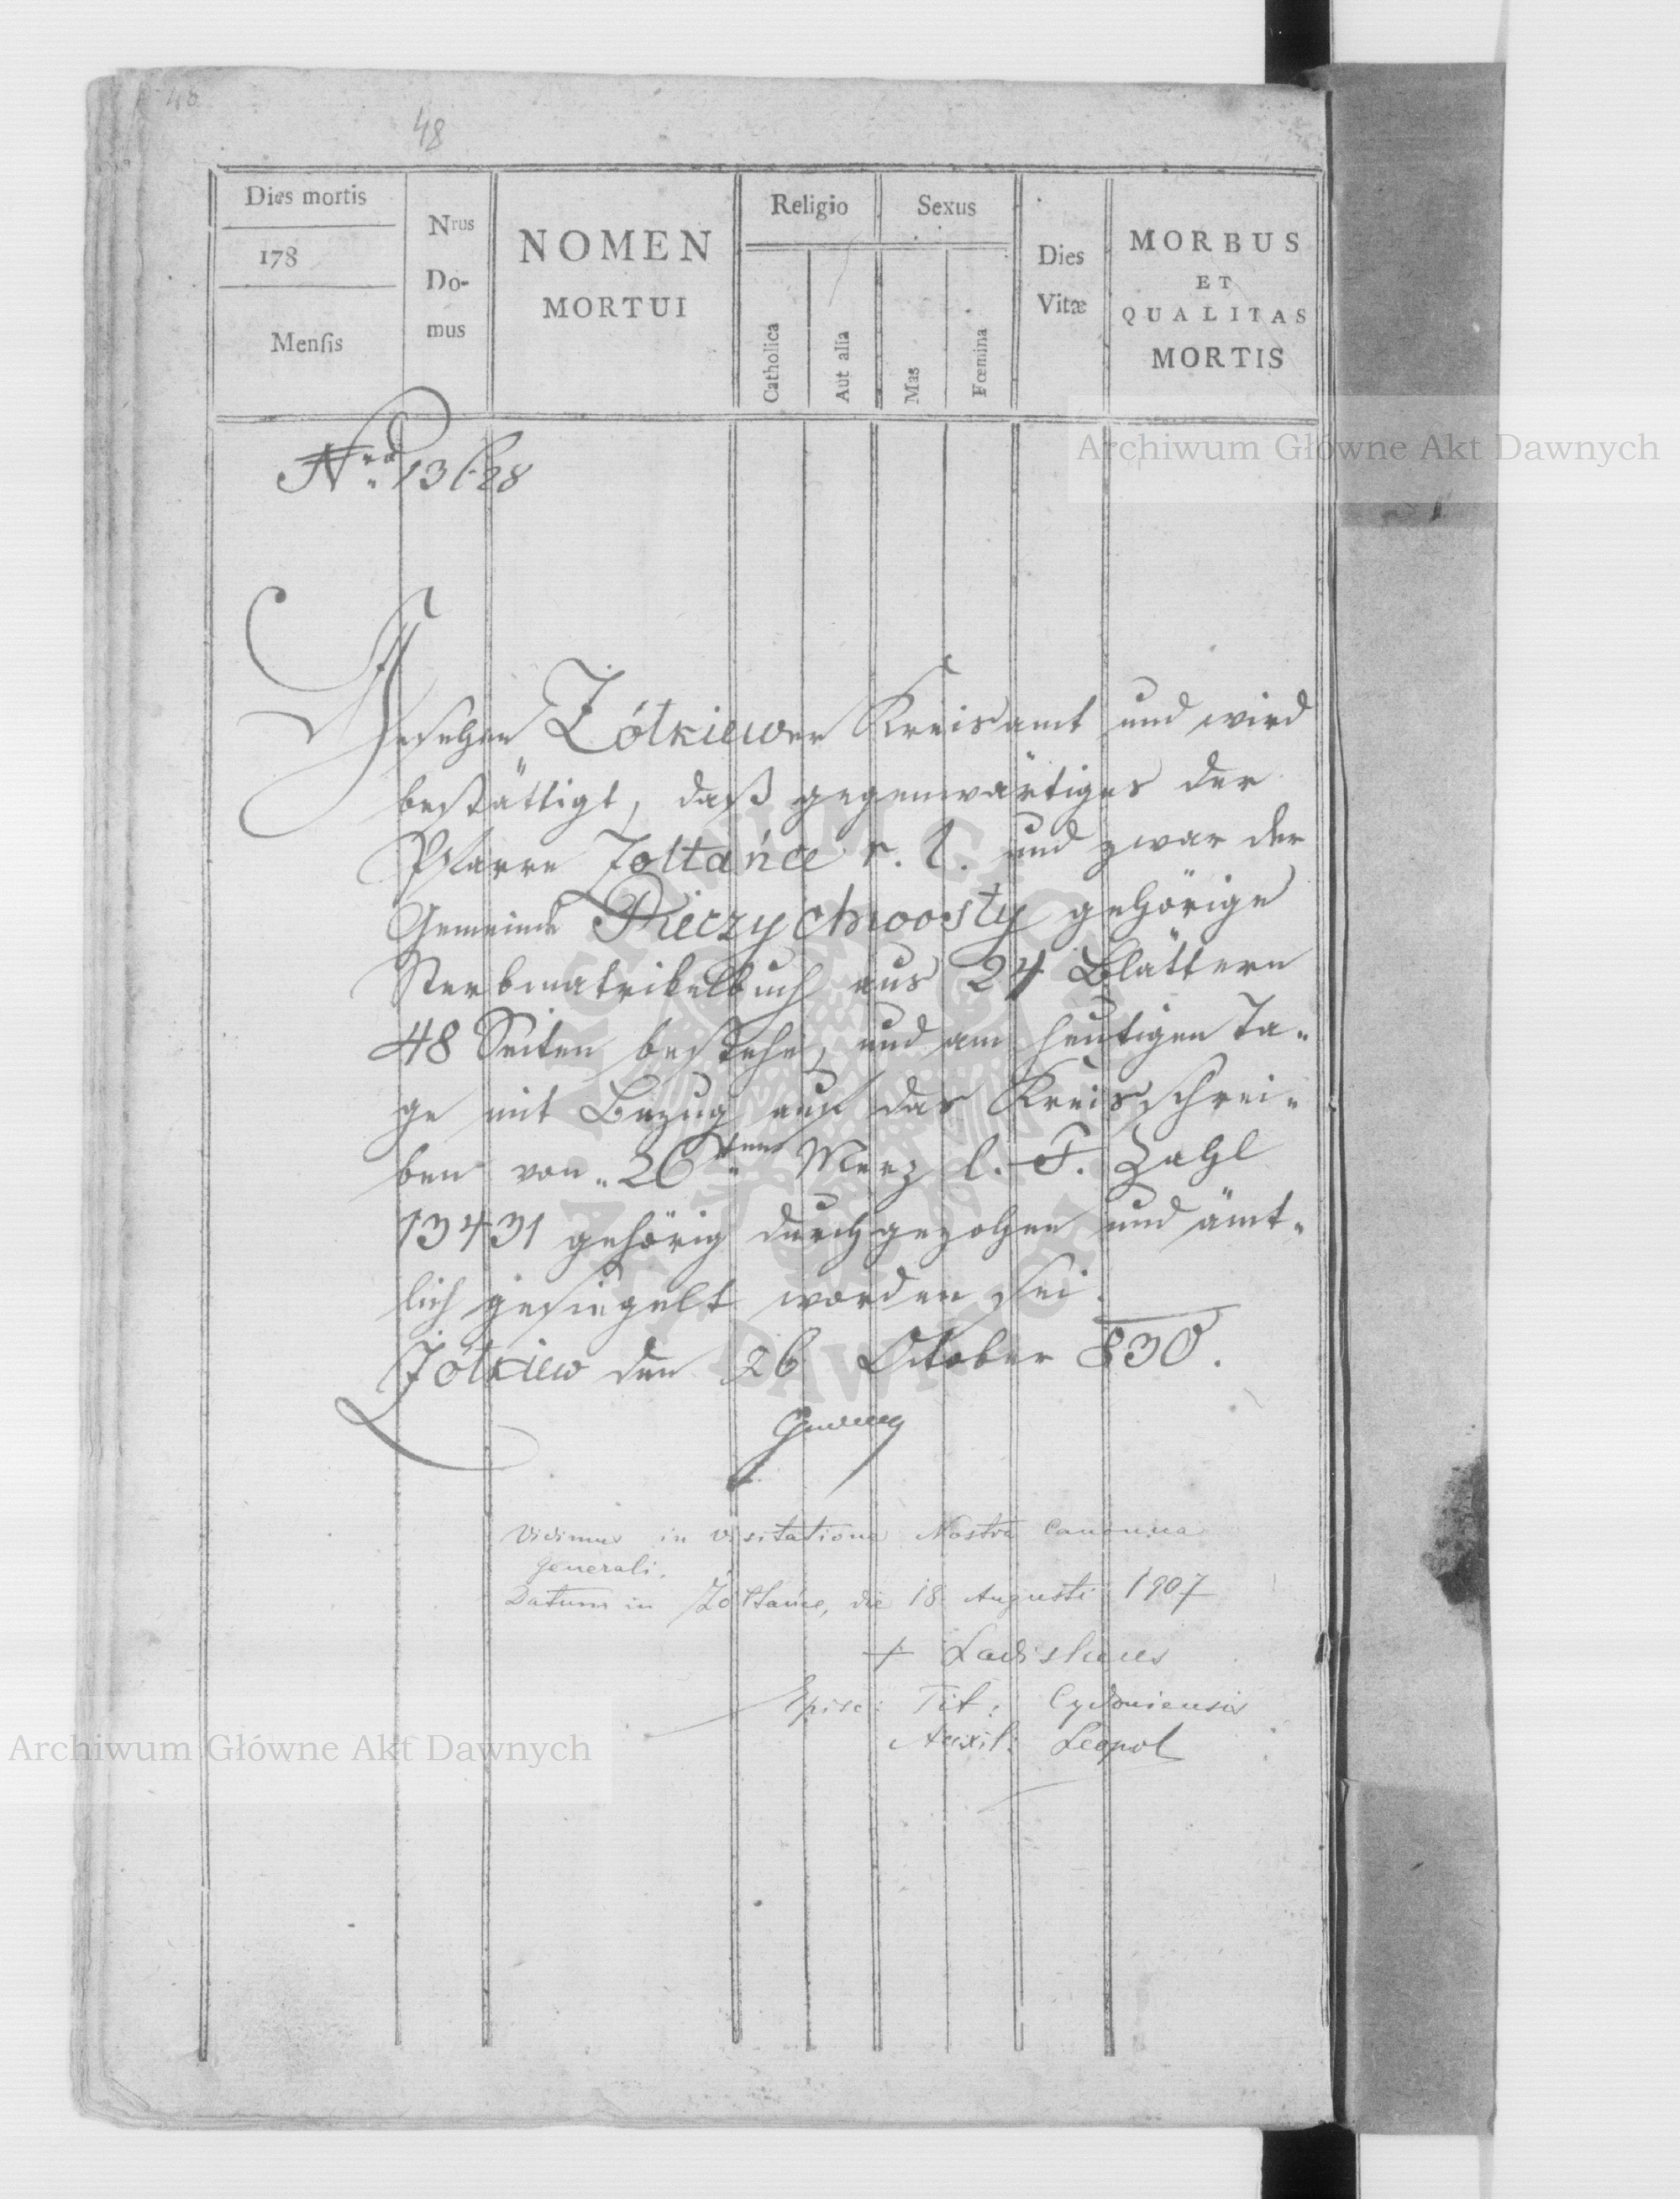 48
Dies mortis
178
Menſis
Nrus
Do-
mus
NOMEN
MORTUI
Religio
Catholica
Aut alia
Sexus
Mas
Fœmina
Dies
Vitæ
MORBUS
ET
QUALITAS
MORTIS
Archiwum Główne Akt Dawnych
Nro 13628
Gesehen Zółkiewer Kreisamt und wird
bestättigt, daß gegenwärtiges der
Pfarre Zołtańce r. l. und zwar der
Gemeinde Pieczychwosty gehörige
Sterbmatrikelbuch aus 24 Blättern
48 Seiten bestehe, und am heutigen Ta-
ge mit Bezug auf das Kreisschrei-
ben von 26ten Merz l. J. Zahl
13431 gehörig durchgezohen und ämt-
lich gesiegelt worden sei.
Zółkiew den 26 October 830.
Vidimus in visitatione Nostra Canonica
generali.
Datum in Żółtańce, die 18 Augusti 1907
+ Ladislaus
Episc: Tit: Cydoniensis
Auxil: Leopol
Archiwum Główne Akt Dawnych